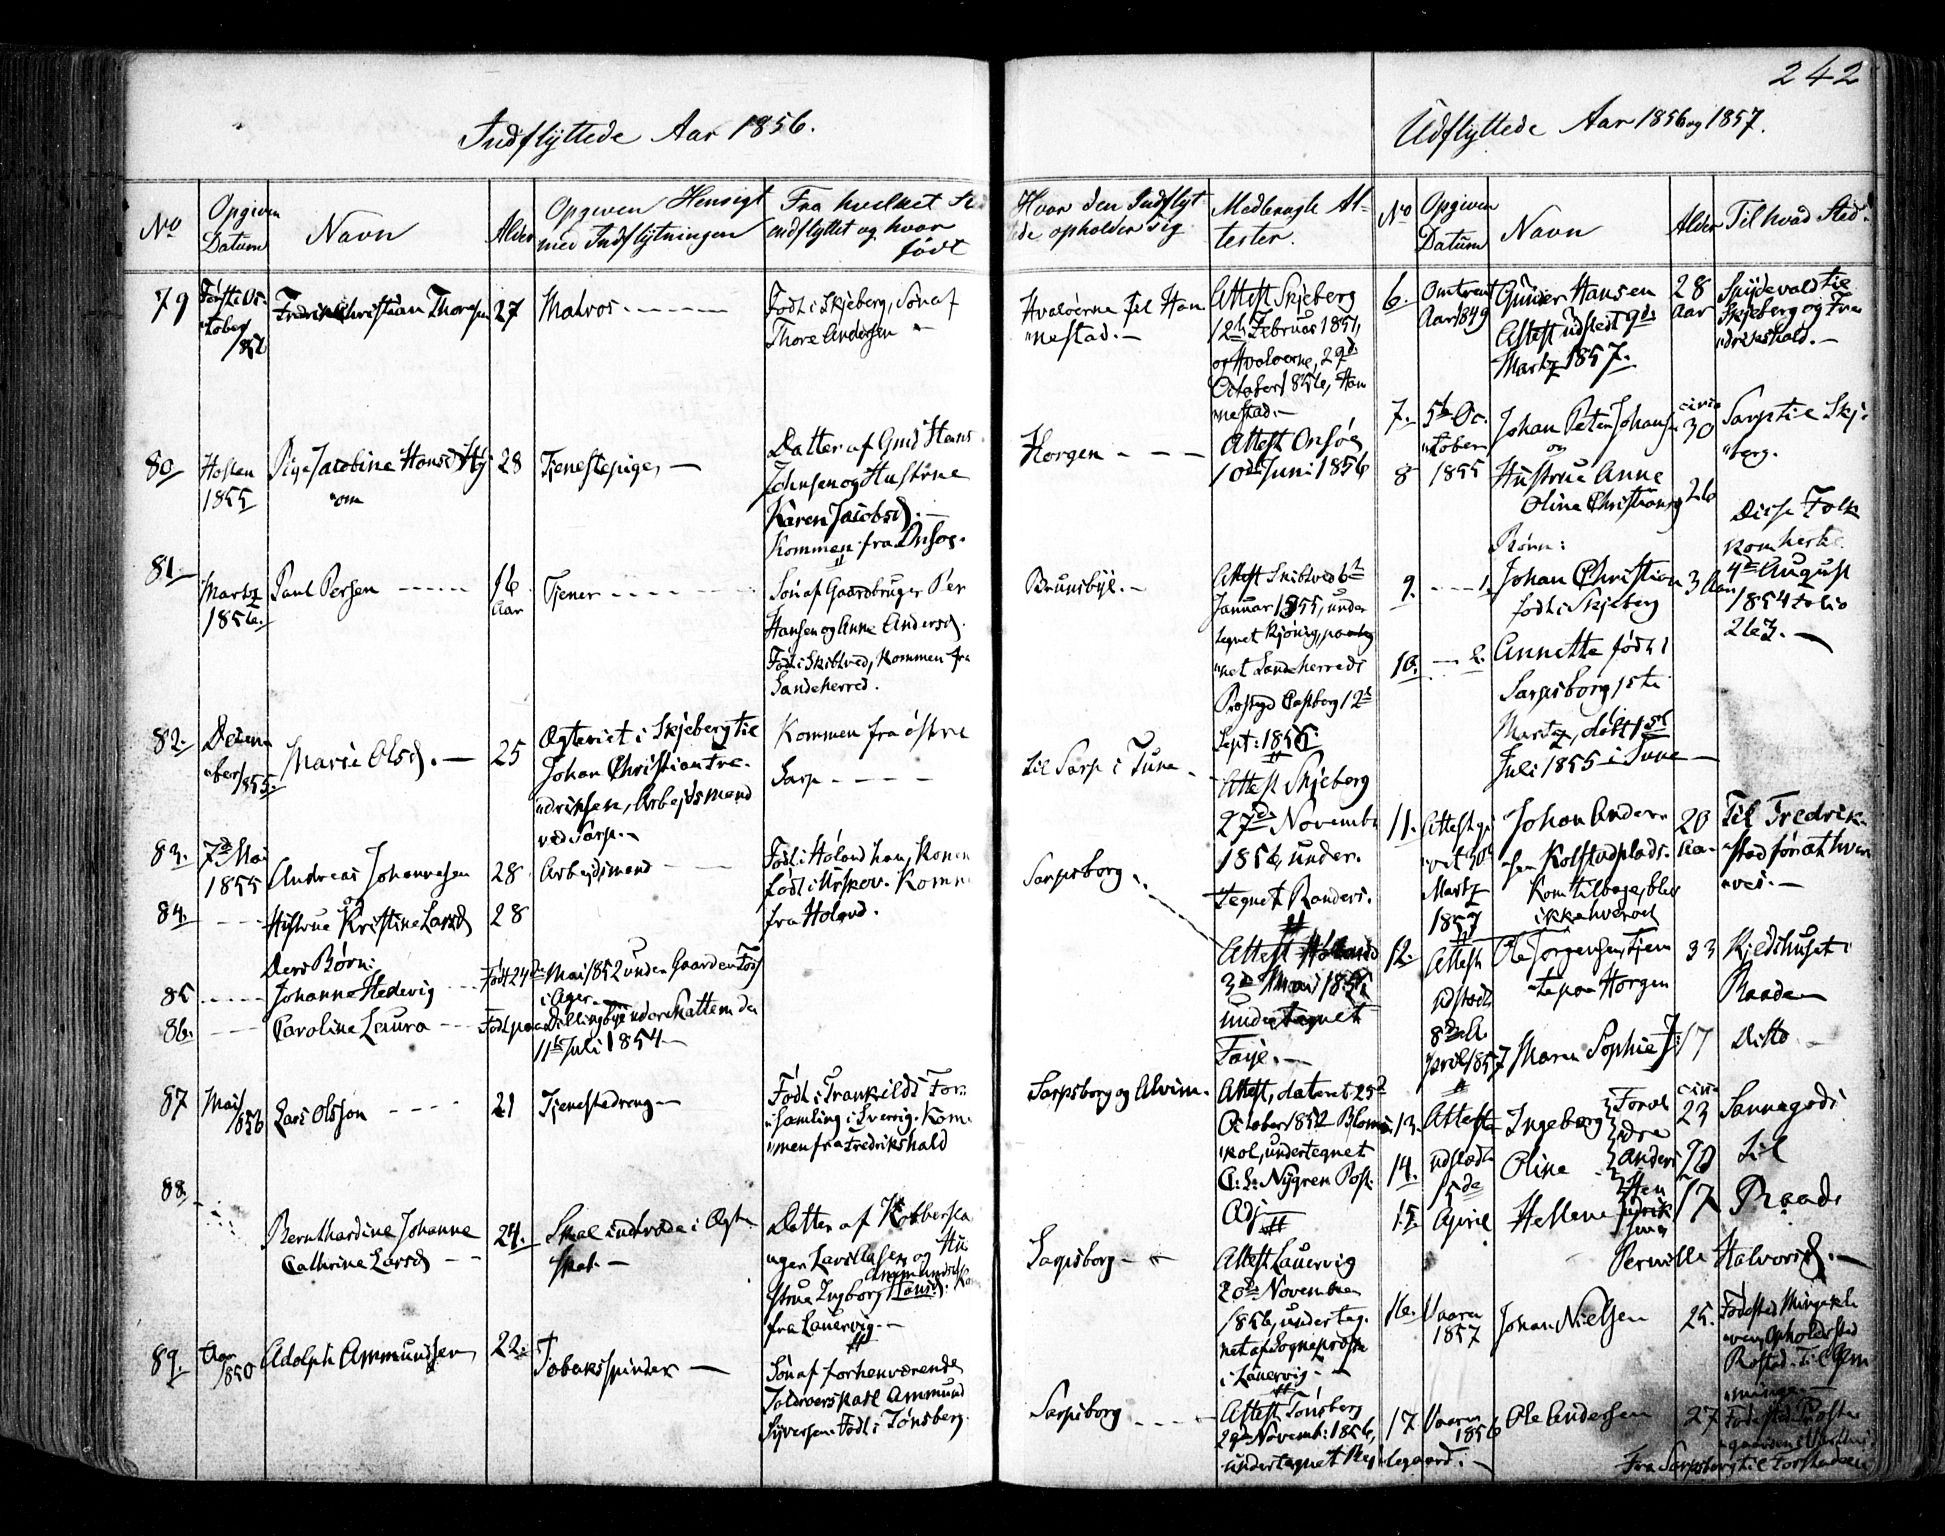 242
Indflyttede Aar 1856.
No
Opgiven
Datum
Navn
Alder
Opgiven Hensigt
med Indflytningen
Fra hvilket Sted
indflyttet og hvor
født
Hvor den Indflyt
de opholder sig
Medbragte At-
tester.
79
Første Oc-
tober
1856
Fredrik Christian Thoresen
27
Matros
Født i Skjeberg, Søn af
Thore Andersen
Hvaløerne til Han
nestad.
Attest Skjeberg
12te Februar 1851,
og Hvaløerne, 29de
October 1856, Han
nestad.
80
Høsten
1855
Pige Jacobine Hansd
28
Tjenestepige,
Datter af Gmd Hans
Johnsen og Hustrue
Karen Jacobsd.
Kommen fra Onsøe.
Horgen
Attest Onsøe
10de Juni 1856
81.
Martz
1856.
Paul Persen
16
Aar
Tjener
Søn af Gaardbruger Per
Hansen og Anne Andersd.
Født i Skibtved, Kommen fra
Sandeherred.
Brunsbye.
Attest Skibtved 6te
Januar 1855, under
tegnet Kjønig, paateg
net Sandeherreds
12te
Sept: 1856
82.
Decem
ber 1855.
Marie Olsd.
25
Ægteviet i Skjeberg til
Johan Christian Fre-
driksen, Arbejdsmand
ved Sarp.
Kommen fra østre
Sarp
til Sarp i Tune
Attest Skjeberg
27de Novembr
1856, under-
tegnet Randers.
83.
7de Mai
1855
Andreas Johannesen
28
Arbejdsmand
Født i Høland, han, Konen
født i Urskov. Kommen
fra Høland.
Sarpsborg
Attest Høland
3de Mai 1856
undertegnet
Faye.
84.
og
Hustrue Kristine Larsd
28
Ders Børn:
85
Johanne Hedevig
Født 24de Mai 1852 under Gaarden Fos
i Ager
86.
Caroline Laura
Født paa Dellingbye under Skattem den
11te Juli 1854
87
Mai
1856
Lars Olsson
21
Tjenestedreng
Født i Trankilds For-
samling i Sverrig. Kom-
men fra Fredrikshald
Sarpsborg og Alvim.
Attest, dateret 25de
October 1852 Blom
kol, undertegnet
C: L: Nygren Past.
Adj
88.
Bernthardine Johanne
Cathrine Larsd
24.
Skal indtræde i Ægte
skab.
Datter af Kobbersla
ger Lars Olasen og Hu
strue Ingborg Ammundsd
fra Laurvig.
Sarpsborg
Attest Laurvig
20de November
1856, underteg-
net af Sogneprest
i Laurvig.
89.
Aar
1850
Adolph Ammundsen
22.
Tobaksspinder
Søn af forhenværende
Toldroerskarl Ammund
Syversen. Født i Tønsberg.
Sarpsborg
Attest Tønsberg
29de Novemb: 1856,
undertegnet Nygaard.
Udflyttede Aar 1856 og 1857.
No
Opgiven
Datum
Navn
Alder
Til hvad Sted.
6.
Omtrent
Aar 1849
Gunder Hansen
Attest udstedt 9de
Martz 1857.
28
Aar
Spydevold til
Skjeberg og Fre
drikshald.
7.
5te Oc-
tober
1855
Johan Peter Johansen
og
circa
30
Sarp til Skje-
berg.
8
Hustrue Anne
Oline Christiansd
26
Disse Folk
kom her til
4de August
1854 folio
263.
Børn:
9.
1.
Johan Christian
født i Skjeberg
3 Aar
10.
2.
Annette født i
Sarpsborg 1ste
Martz, døbt 1ste
Juli 1855 i Tune
11.
Attest gi
vet 30te
Martz
1857
Johan Ander-
sen Kolstadplads.
Kom tilbage, blev
ikke hvervet
20
Aar
Til Fredrik-
stad for at hver
ves.
12.
Attest
udstædt
8de A
pril 1857
Ole Jørgensen, tjen
te paa Horgen
33
Kjedshuset i
Raade
Maren Sophie J:
17
Ditto
13.
Attest
udstædt
15de
April
Ingeborg
circa
23
Sannegods
14.
Oline
Anders
20
til
15.
Hellene
17
Raade
Pernille Halvorsd.
16.
Vaaren
1857
Johan Nielsen
25.
17.
Vaaren
1856
Ole Andersen
27
Fra Sarpsborg til Torsnæs